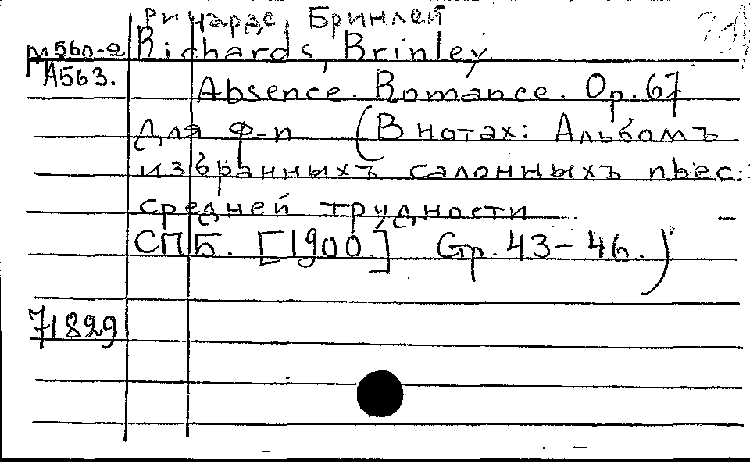 Ричардс, Бринлей
М560-2 Richards, Brinley
А563.
Absence. Romance. Op. 67
Для ф-п (В нотах: Альбомъ
избранныхъ салонныхъ пьес:
средней трудности
СПБ. [1900.] Стр. 43-46.)
71829